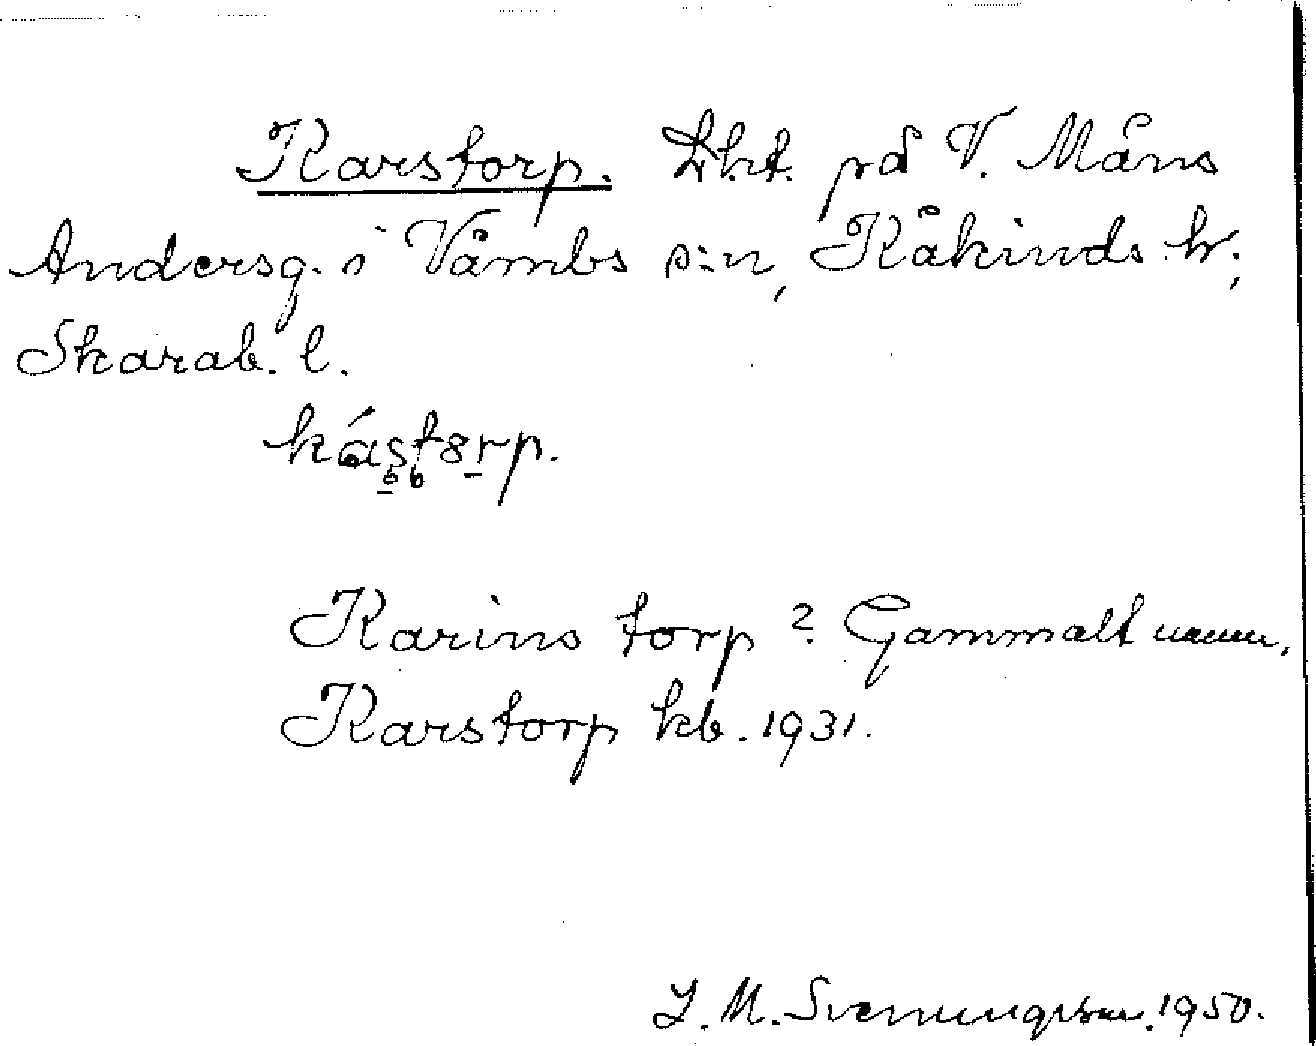 Karstorp. Lht. på V. Måns
Andersg. i Våmbs s:n, Kåkinds h.,
Skarab. l.
kástorp.
Karins torp? Gammalt namn.
Karstorp kb. 1931.
J. M. Svenungsson. 1950.